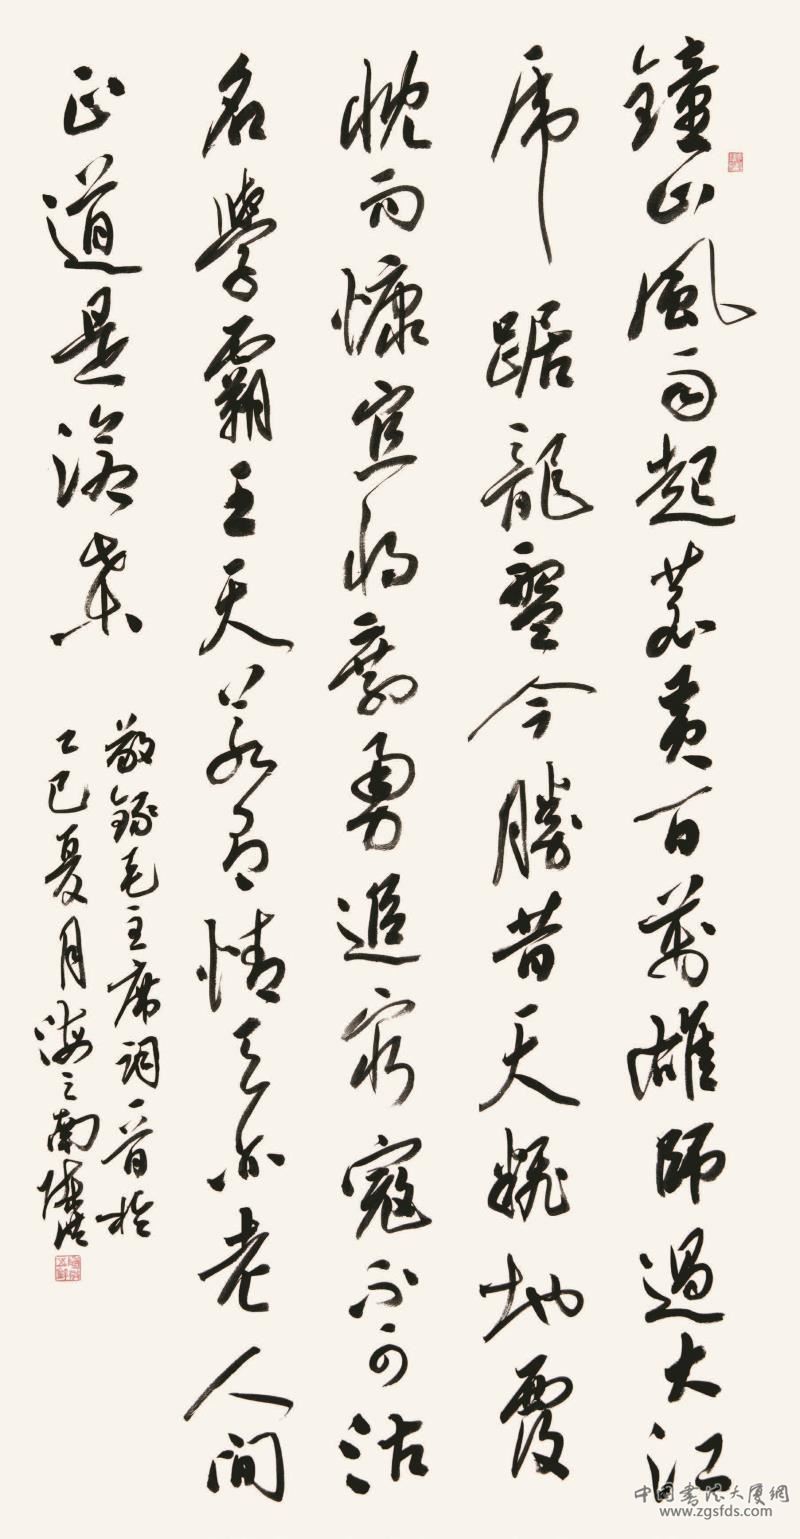 鐘山風雨起蒼黃百萬雄師過大江
虎踞龍盤今勝昔天翻地覆
慨而慷宜將剩勇追窮寇不可沽
名學霸王天若有情天亦老人間
正道是滄桑
敬錄毛主席詞一首於
乙巳夏月海之南
中国书法大厦網
www.zgsfds.com